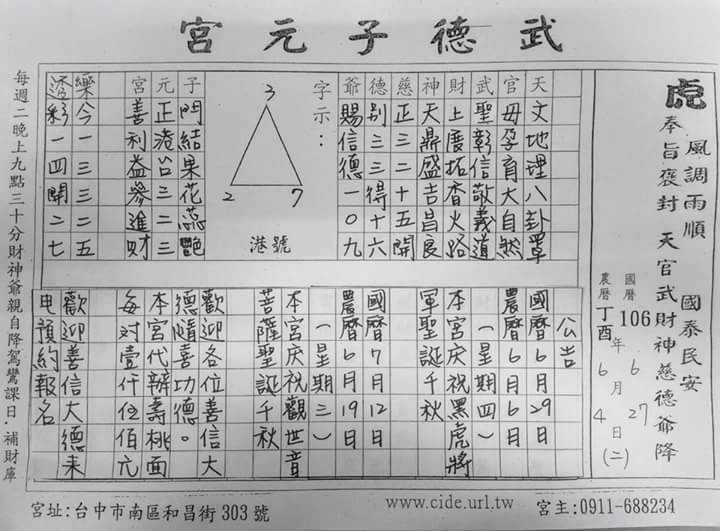 武德子元宮
虎
風調雨順 國泰民安
奉旨褒封 天官武財神慈德爺降
國曆 106年 6月27日(二)
農曆 丁酉 6 4
天文地理八卦罩
官母孕育大自然
武聖彰信敬義道
財上慶拓香火路
神天鼎盛吉昌良
慈正三二十五開
德別三三得十六
爺賜信德一0九
字示：
3
2 7
港號
子門結果花蕊艷
元正港台三二三
宮善利益參進財
樂今一三三二五
透彩一四開二七
公吉
國曆6月29日
農曆6月6日
(一星期四)
本宮庆祝黑虎將
軍聖誕千秋
國曆7月12日
農曆6月19日
(一星期三)
本宮庆祝觀世音
菩薩聖誕千秋
歡迎各位善信大
德隨喜功德。
本宮代辦壽桃面
每对壹仟伍佰元
歡迎善信大德來
电預約報名
每週二晚上九點三十分財神爺親自降駕鸞課日．補財庫
宮址:台中市南區和昌街 303 號
www.cide.url.tw
宮主:0911-688234